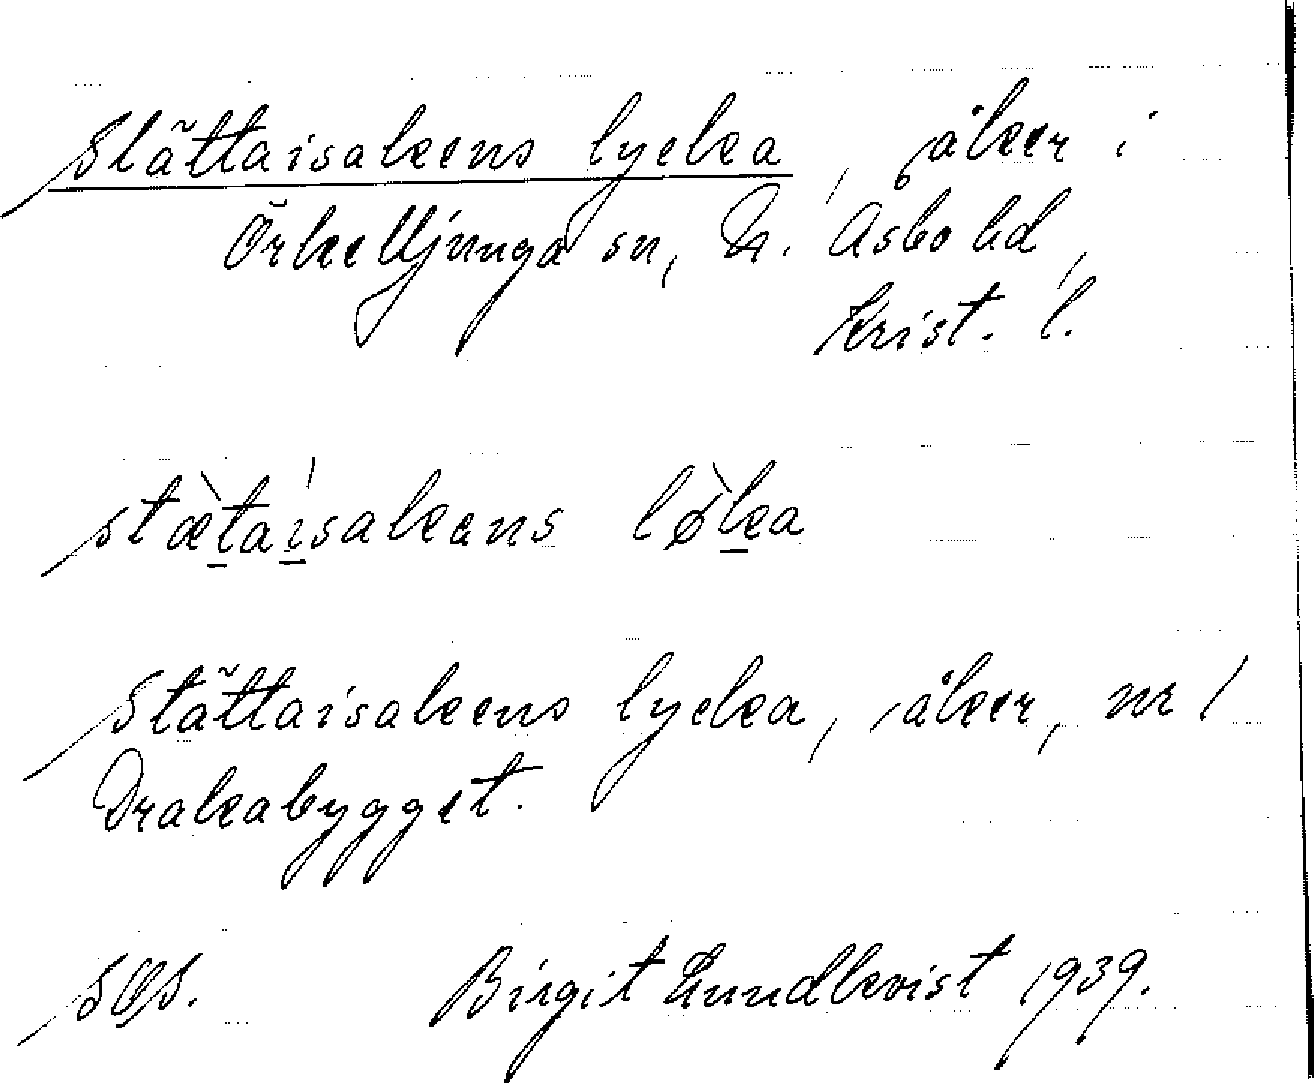 Stättaisakens lycka, åker i
Örkelljunga sn, N. Åsbo hd,
Krist. l.
stætaisakens løka
Stättaisakens lycka, åker, nr 1
Drakabygget.
SOS. Birgit Lundkvist 1939.